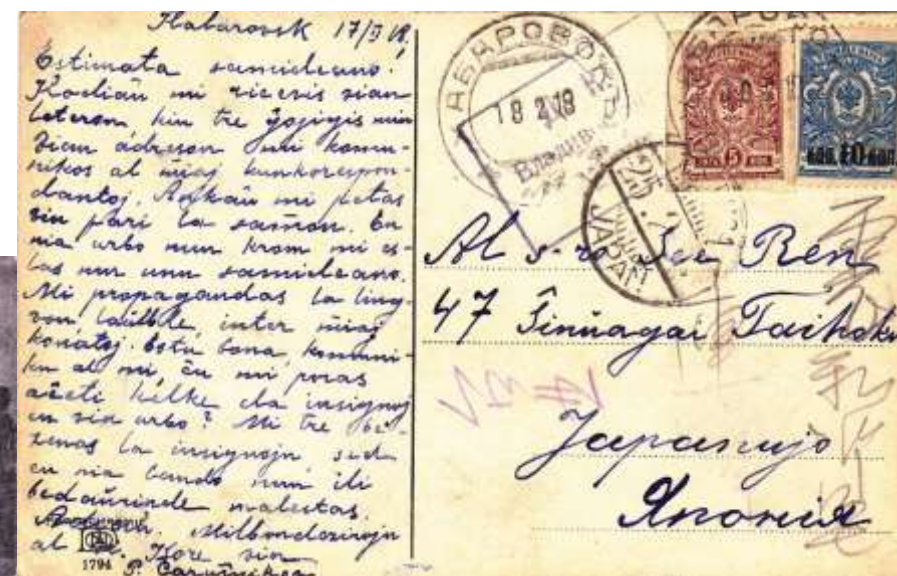 Habarovsk 17/II 18.
Estimata samideano!
Hodiaŭ mi ricevis vian
leteron kiu tre ĝojigis min
Vian adreson mi komu-
nikos al miaj kunkorespon-
dantoj. Ankaŭ mi petas
vin fari la samon. En
nia urbo nun krom mi es-
tas nur unu samideano.
Mi propagandas la ling-
von laŭeble, inter miaj
konatoj. Estu bona, komuni-
ku al mi, ĉu mi povas
aĉeti kelke da insignoj
en via urbo? Mi tre be-
zonas la insignojn sed
en nia lando nun ili
bedaŭrinde malestas.
Milbondezirojn
al Kore via
P.
1794
ХАБАРОВСКЪ
18 2 18
Владив
JAPAN
5 КОП.
КОП. 10 КОП.
Al s-ro See Ren
47 Ŝinnagai Taihoku
Japanujo
Японія